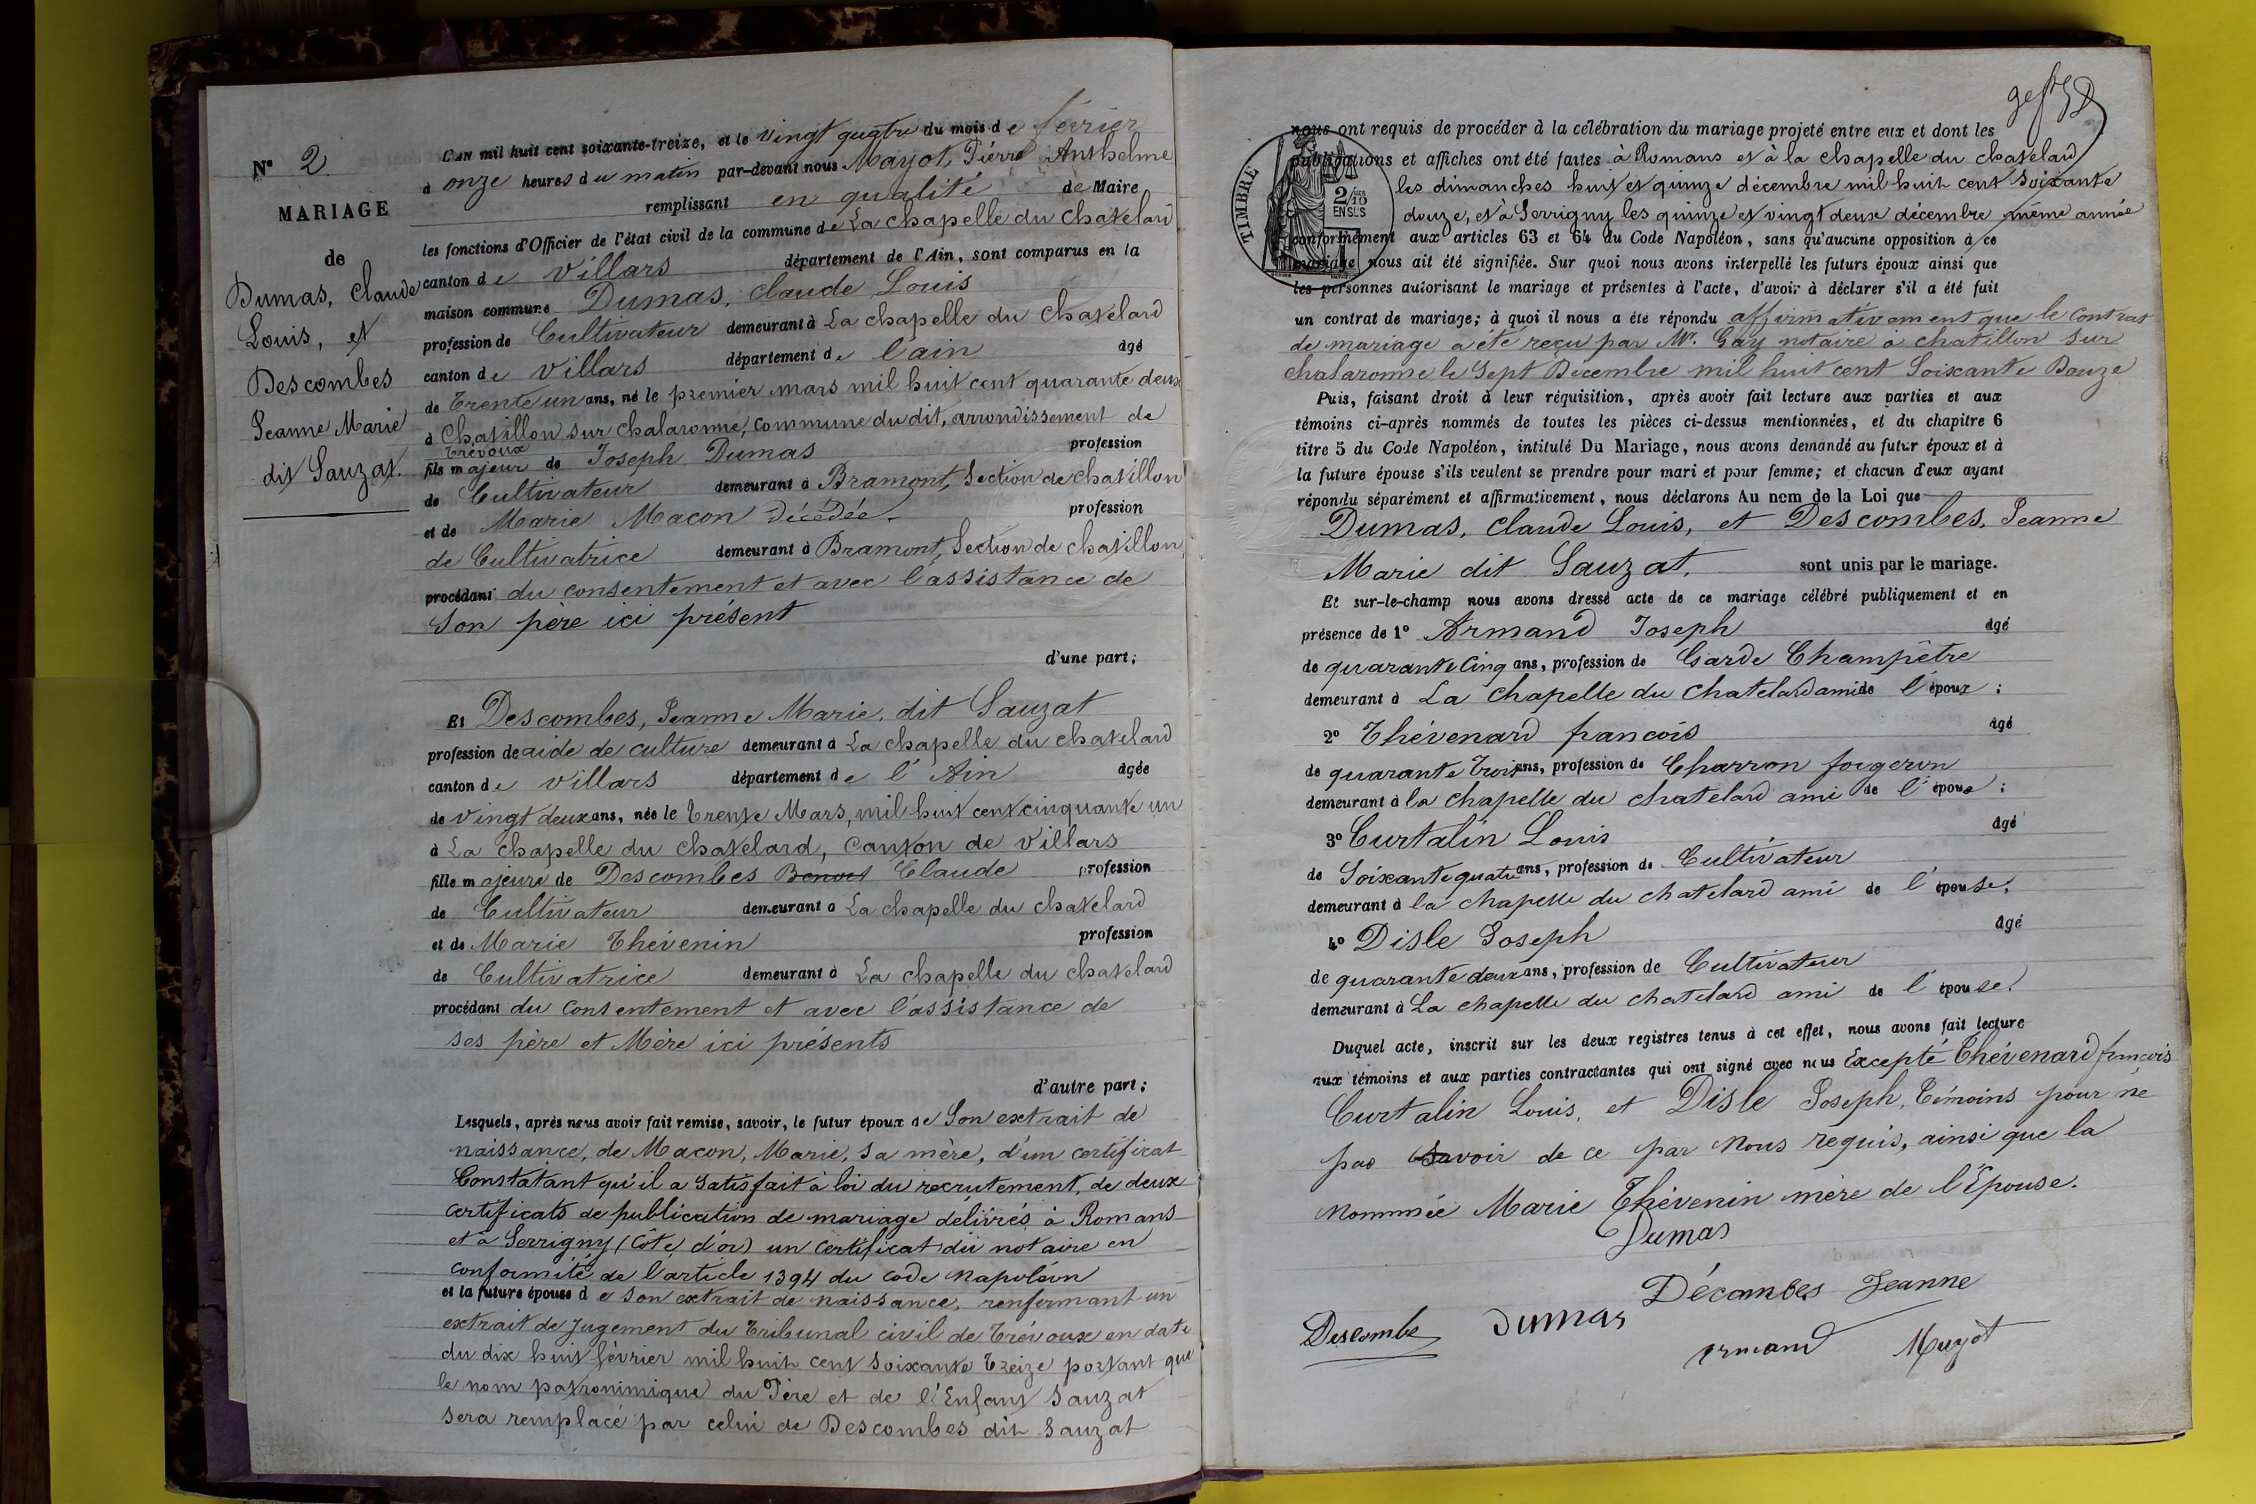 N° 2
MARIAGE
de
Dumas, Claude
Louis, et
Descombes
Jeanne Marie
dit Sauzat.
L'AN mil huit cent soixante-treize, et le vingt quatre du mois de février
à onze heures du matin par-devant nous Mayot, Pierre Anthelme
remplissant en qualité de Maire
les fonctions d'Officier de l'état civil de la commune de La chapelle du Chatelard
canton de Villars département de l'Ain, sont comparus en la
maison commune Dumas, Claude Louis
profession de Cultivateur demeurant à La chapelle du Chatelard
canton de Villars département de l'ain âgé
de Trente un ans, né le premier mars mil huit cent quarante deux
à Chatillon sur chalaronne, commune du dit, arrondissement de
Trévoux
fils majeur de Joseph Dumas profession
de Cultivateur demeurant à Bramont, Section de chatillon
et de Marie Macon Décédée. profession
de Cultivatrice demeurant à Bramont, Section de chatillon,
procédant du consentement et avec l'assistance de
Son père ici présent
d'une part;
Et Descombes, Jeanne Marie, dit Sauzat
profession de aide de culture demeurant à La chapelle du chatelard
canton de Villars département de l'Ain âgée
de vingt deux ans, née le Trente Mars, mil huit cent cinquante un
à La chapelle du chatelard, Canton de Villars
fille majeure de Descombes Benoit Claude profession
de Cultivateur demeurant à La chapelle du chatelard
et de Marie Thévenin profession
de Cultivatrice demeurant à La chapelle du chatelard
procédant du Consentement et avec l'assistance de
ses père et Mère ici présents
d'autre part;
Lesquels, après nous avoir fait remise, savoir, le futur époux de Son extrait de
naissance, de Macon, Marie, sa mère, d'un certificat
Constatant qu'il a satisfait à loi du recrutement, de deux
certificats de publication de mariage délivrés à Romans
et à Serrigny (Côte d'or) un certificat du notaire en
conformité de l'article 1394 du code Napoléon
et la future épouse de son extrait de naissance, renfermant un
extrait de jugement du Tribunal civil de Trévoux en date
du dix huit février mil huit cent soixante treize portant que
le nom patronimique du Père et de l'Enfant Sauzat
sera remplacé par celui de Descombes dit Sauzat
TIMBRE
2/10
EN SUS
nous ont requis de procéder à la célébration du mariage projeté entre eux et dont les
publications et affiches ont été faites à Romans et à la chapelle du chatelard
les dimanches huit et quinze décembre mil huit cent soixante
douze, et à Serrigny les quinze et vingt deux décembre même année
conformément aux articles 63 et 64 du Code Napoléon, sans qu'aucune opposition à ce
mariage nous ait été signifiée. Sur quoi nous avons interpellé les futurs époux ainsi que
les personnes autorisant le mariage et présentes à l'acte, d'avoir à déclarer s'il a été fait
un contrat de mariage; à quoi il nous a été répondu affirmativement que le Contrat
de mariage a été reçu par Mr. Gay notaire à chatillon sur
chalaronne le Sept Décembre mil huit cent Soixante Douze
Puis, faisant droit à leur réquisition, après avoir fait lecture aux parties et aux
témoins ci-après nommés de toutes les pièces ci-dessus mentionnées, et du chapitre 6
titre 5 du Code Napoléon, intitulé Du Mariage, nous avons demandé au futur époux et à
la future épouse s'ils veulent se prendre pour mari et pour femme; et chacun d'eux ayant
répondu séparément et affirmativement, nous déclarons Au nom de la Loi que
Dumas, Claude Louis, et Descombes, Jeanne
Marie dit Sauzat, sont unis par le mariage.
Et sur-le-champ nous avons dressé acte de ce mariage célébré publiquement et en
présence de 1° Armand Joseph âgé
de quarante cinq ans, profession de Garde Champêtre
demeurant à La Chapelle du Chatelard ami de l'époux;
2° Thévenard francois âgé
de quarante trois ans, profession de Charron forgeron
demeurant à la chapelle du chatelard ami de l'époux;
3° Curtalin Louis âgé
de Soixante quatre ans, profession de Cultivateur
demeurant à la chapelle du chatelard ami de l'épouse.
4° Disle Joseph âgé
de quarante deux ans, profession de Cultivateur
demeurant à La chapelle du chatelard ami de l'épouse.
Duquel acte, inscrit sur les deux registres tenus à cet effet, nous avons fait lecture
aux témoins et aux parties contractantes qui ont signé avec nous Excepté Thévenard francois
Curtalin Louis, et Disle Joseph, Témoins pour ne
pas savoir de ce par Nous requis, ainsi que la
Nommée Marie Thévenin mère de l'Épouse.
Dumas
Décombes Jeanne
Descombe Dumas
Armand Mayot